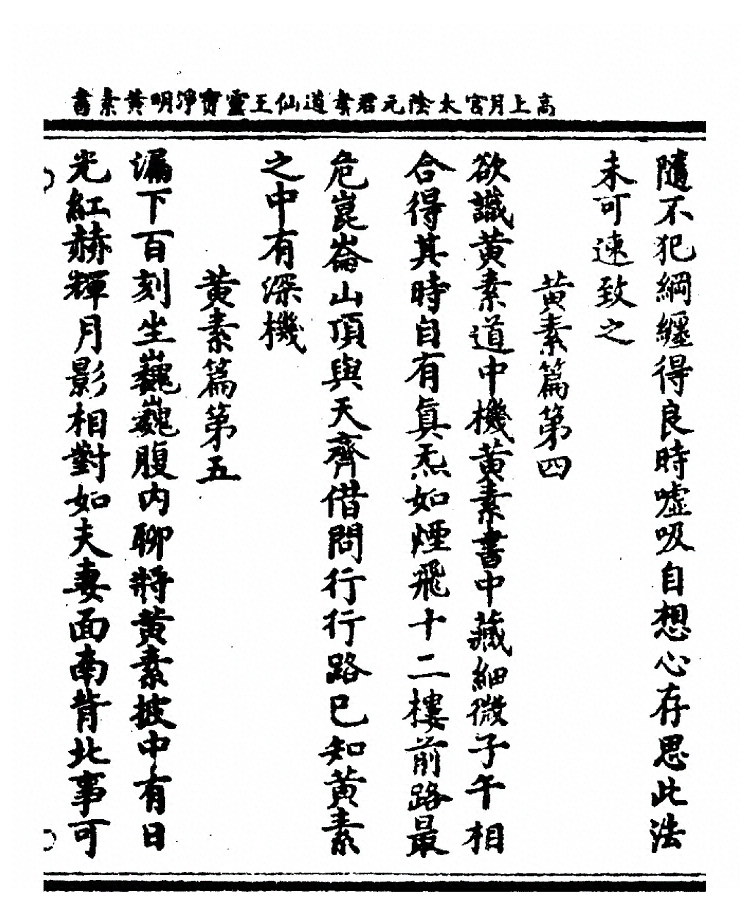 高上月宮太陰元君孝道仙王靈寶淨明黃素書
隨不犯綱纏得良時噓吸自想心存思此法
未可速致之
黃素篇第四
欲識黃素道中機黃素書中藏細微子午相
合得其時自有真炁如煙飛十二樓前路最
危崑崙山頂與天齊借問行行路已知黃素
之中有深機
黃素篇第五
漏下百刻坐巍巍腹內聊將黃素披中有日
光紅赫輝月影相對如夫妻面南背北事可